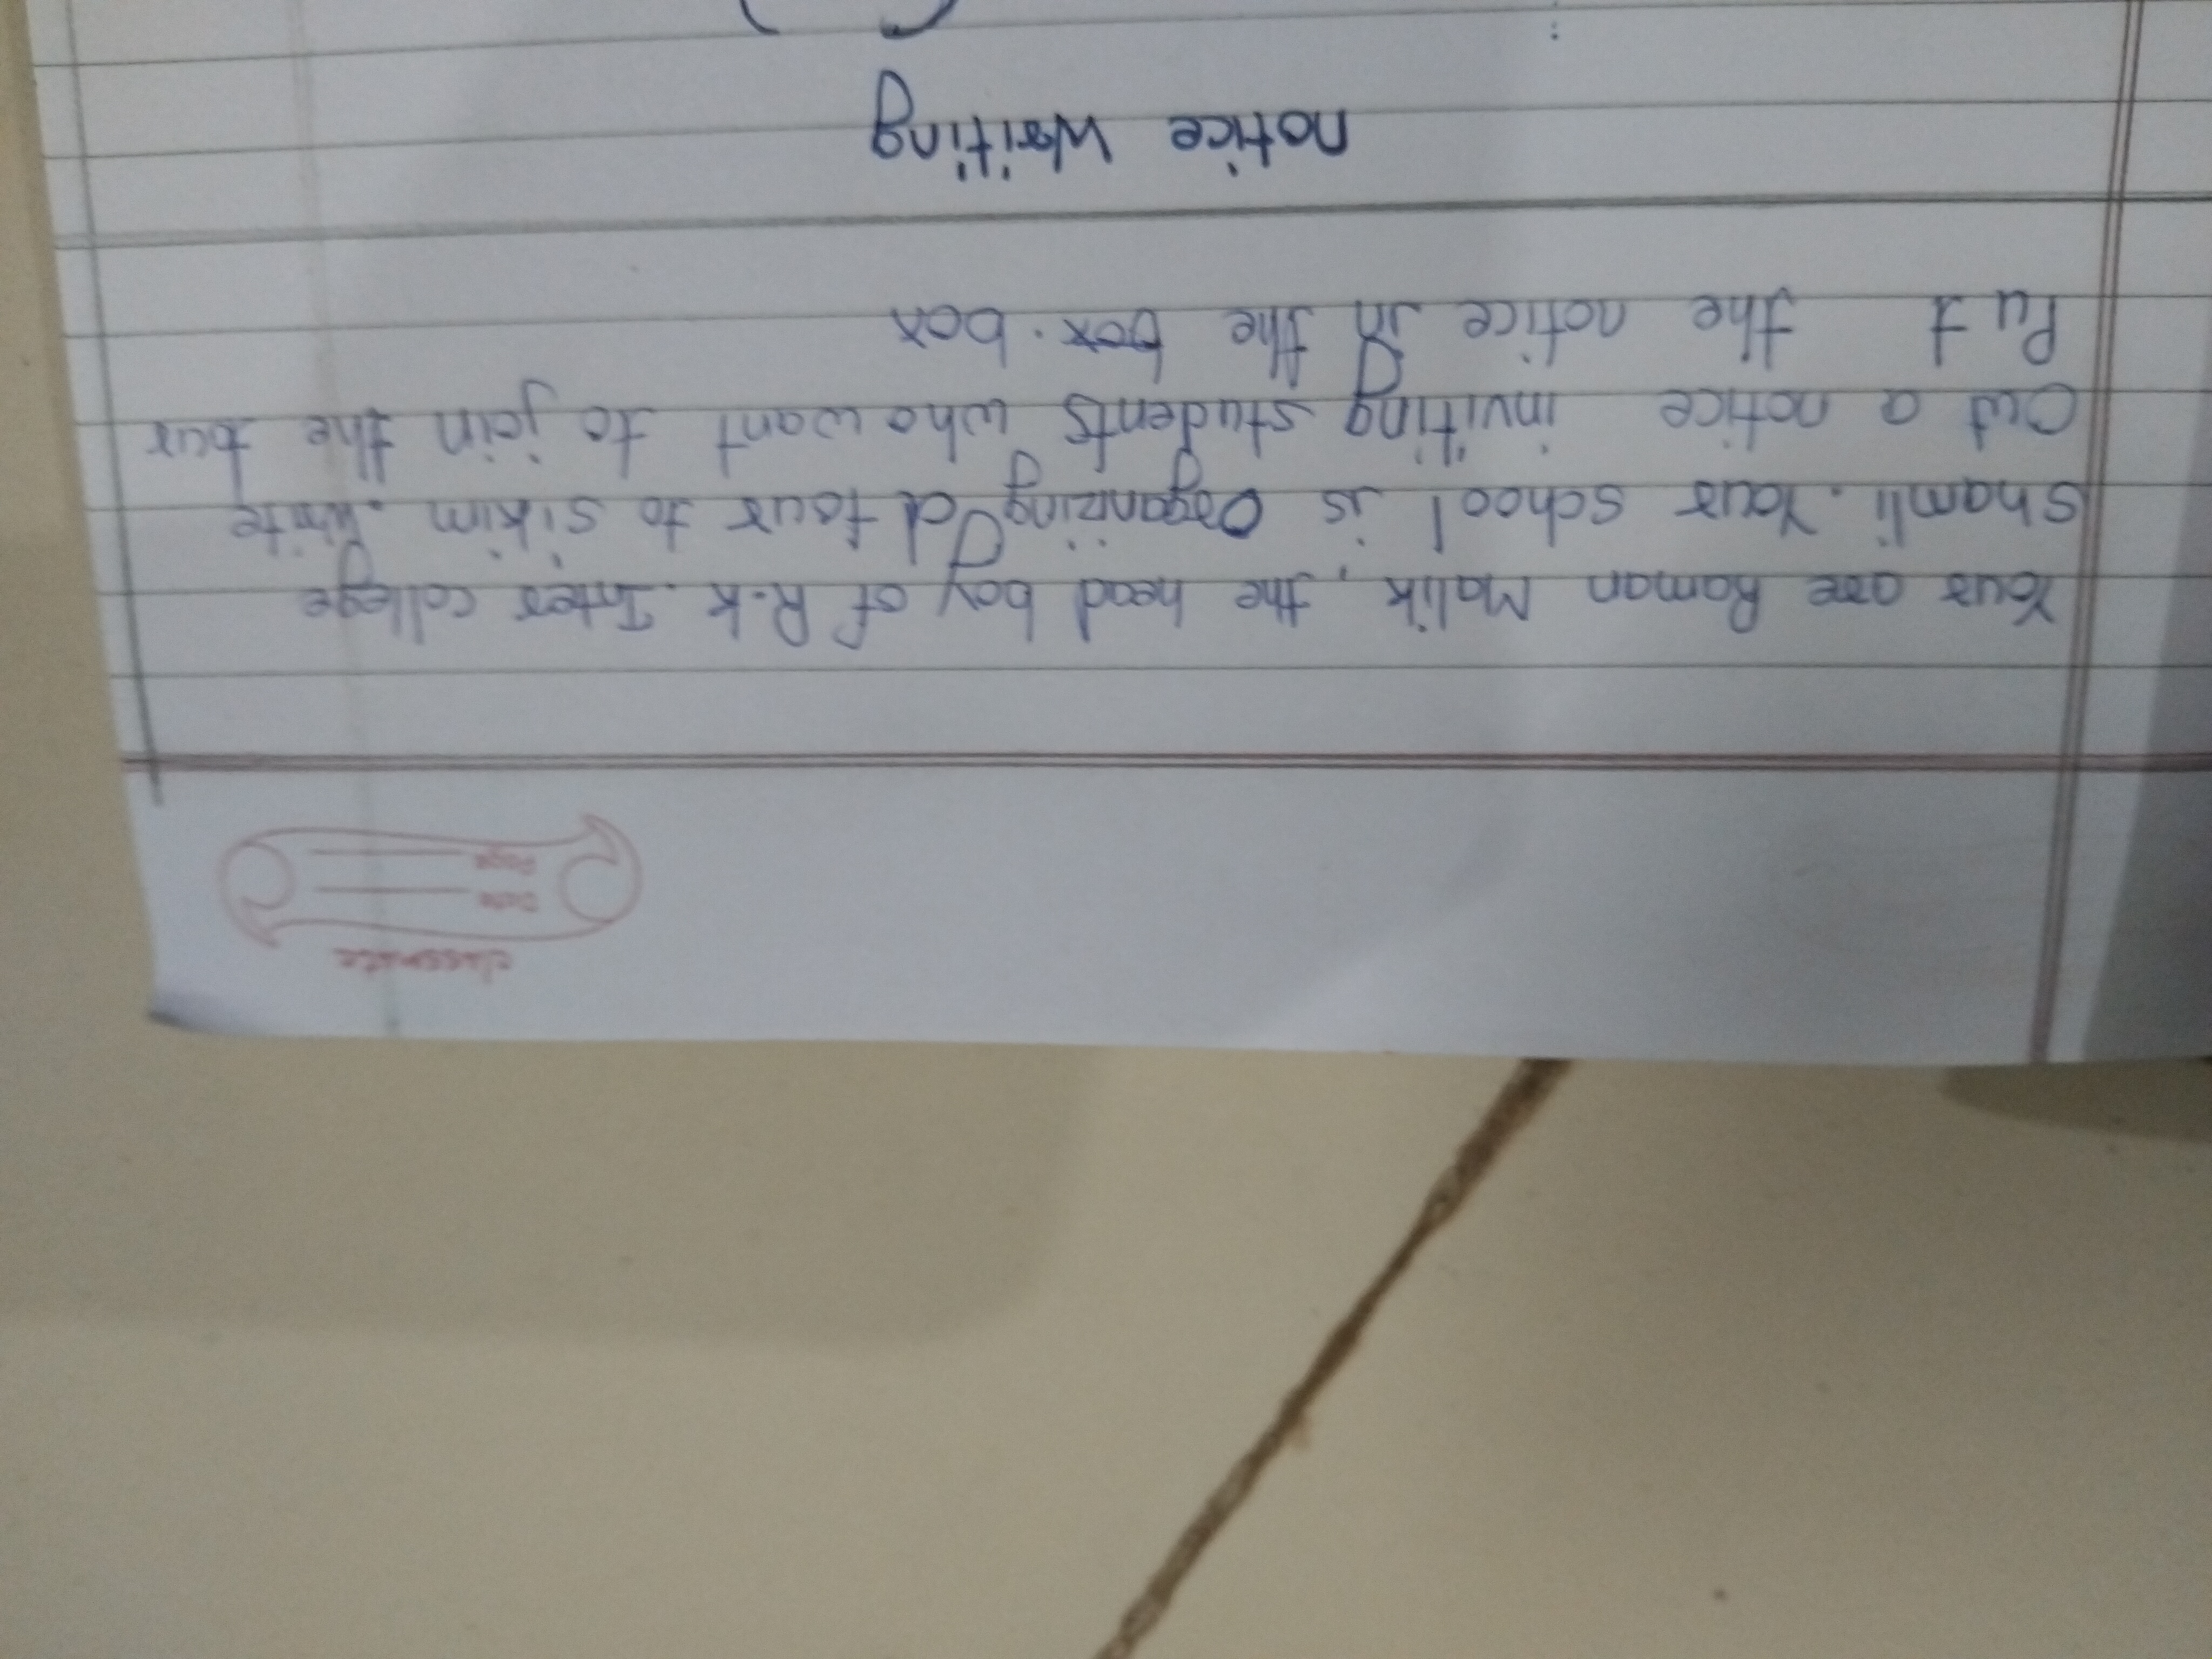 classmate
Date
Page
Your are Raman Malik, the head boy of R.k. Inter college
Shamli. Your school is Organizing a tour to sikim. write
Out a notice inviting students who want to join the tour
Put the notice in the box. box
notice writing